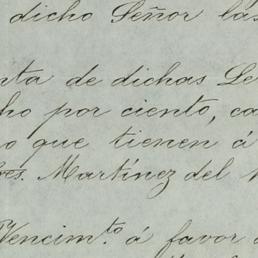 dicho Señor las
nta de dichas Le
ho por ciento, ca
o que tienen á
es. Martínez del
Vencim.to á favor